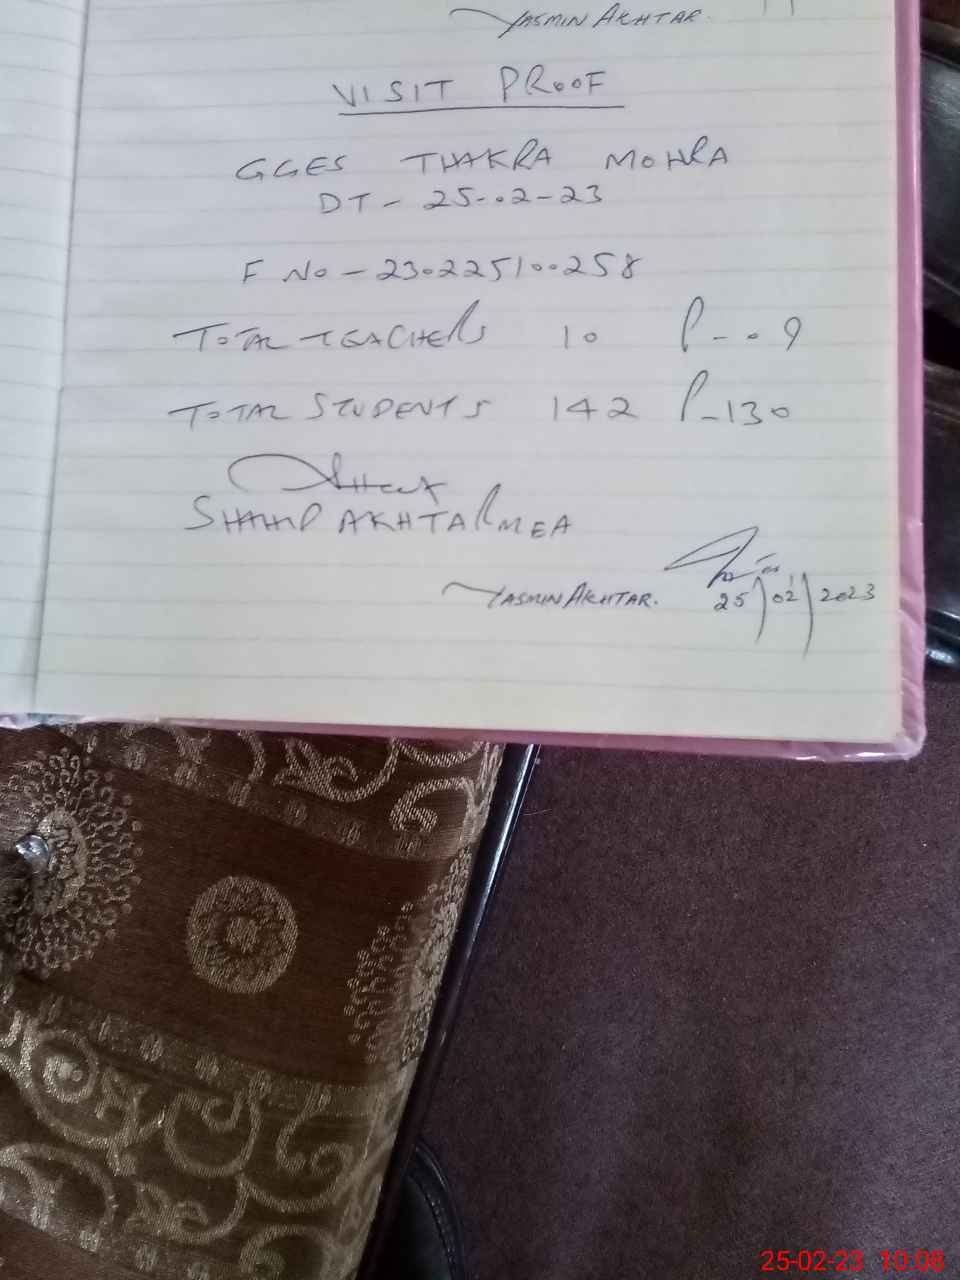 YASMIN AKHTAR.
VISIT PROOF
GGES THAKRA MOHRA
DT - 25-02-23
F NO - 230225100258
TOTAL TEACHERS 10 P-09
TOTAL STUDENTS 142 P-130
AKHTAR MEA
YASMIN AKHTAR. 25/02/2023
25-02-23 10:08